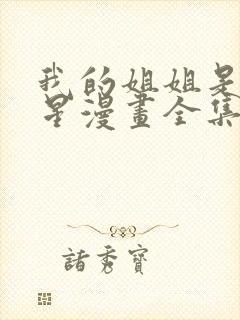 我的姐姐是
星漫畫全集
諸秀寶